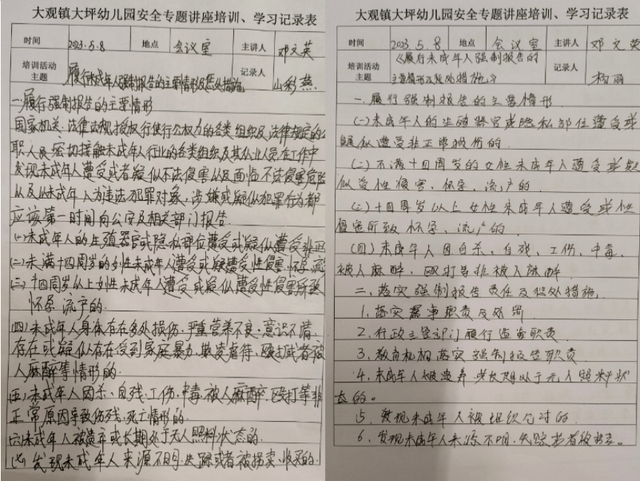 大观镇大坪幼儿园安全专题讲座培训、学习记录表
时间 2023.5.8 地点 会议室 主讲人 邓文英
培训活动主题 履行未成年人强制报告的主要情形及惩处措施 记录人 山彩燕
一.履行强制报告的主要情形
国家机关、法律法规授权行使公权力的各类组织及法律规定的公
职人员,密切接触未成年人行业的各类组织及其从业人员,在工作中
发现未成年人遭受或者疑似遭受不法侵害以及面临不法侵害危险
以及以未成年人为违法犯罪对象,涉嫌或疑似犯罪行为都
应该第一时间向公安及相关部门报告。
(一)未成年人的生殖器官或隐私部位遭受或疑似遭受非正
(二)未满十四周岁的女性未成年人遭受或疑似遭受性侵害、怀孕、流
(三)十四周岁以上女性未成年人遭受或疑似遭受性侵害所致
怀孕、流产的.
(四)未成年人身体存在多处损伤,严重营养不良,意识不清,
存在或疑似存在受到家庭暴力、欺凌、虐待、殴打或者被
人麻醉等情形的
(五)未成年人因自杀、自残、工伤、中毒、被人麻醉、殴打等非
正常原因导致伤残、死亡情形的
(六)未成年人被遗弃或长期处于无人照料状态的
(七)发现未成年人来源不明、失踪或者被拐卖、收买的.
大观镇大坪幼儿园安全专题讲座培训、学习记录表
时间 2023.5.8 地点 会议室 主讲人 邓文英
培训活动主题 《履行未成年人强制报告的主要情形及惩处措施》 记录人
一.履行强制报告的主要情形
(一)未成年人的生殖器官或隐私部位遭受或
疑似遭受非正常损伤的.
(二)不满十四周岁的女性未成年人遭受或疑
似受性侵害、怀孕、流产的
(三)十四周岁以上女性未成年人遭受或性
侵害所致怀孕、流产的
(四)未成年人因自杀、自残、工伤、中毒、
被人麻醉、殴打等非
二、落实强制报告责任及惩处措施.
1.落实 职责及惩罚
2.行政主管部门履行监督职责
3.教育机构落实强制报告职责
4.未成年人被遗弃或长期处于无人照料状
态的。
5.发现未成年人被组织乞讨的
6.发现未成年人来源不明、失踪或者被拐卖。